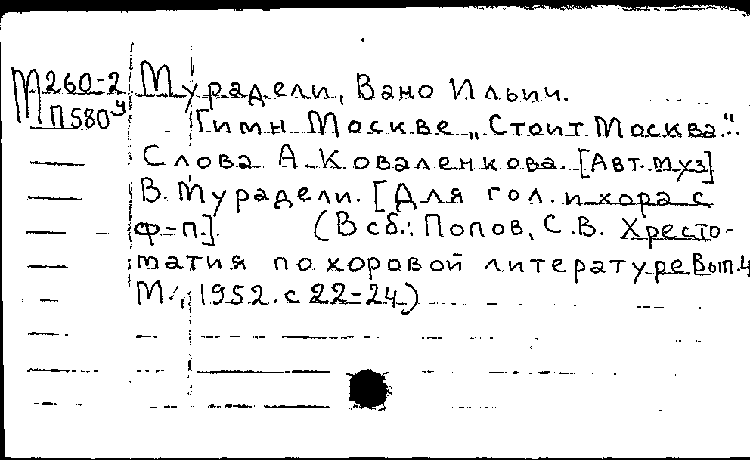 М260-2 Мурадели, Вано Ильич.
П580у Гимн Москве „Стоит Москва".
Слова А. Коваленкова. [Авт. муз]
В. Мурадели. [Для гол. и хора с
ф=п.] (В сб.: Попов, С.В. Хресто-
матия по хоровой литературе Вып. 4
М., 1952. с 22-24)